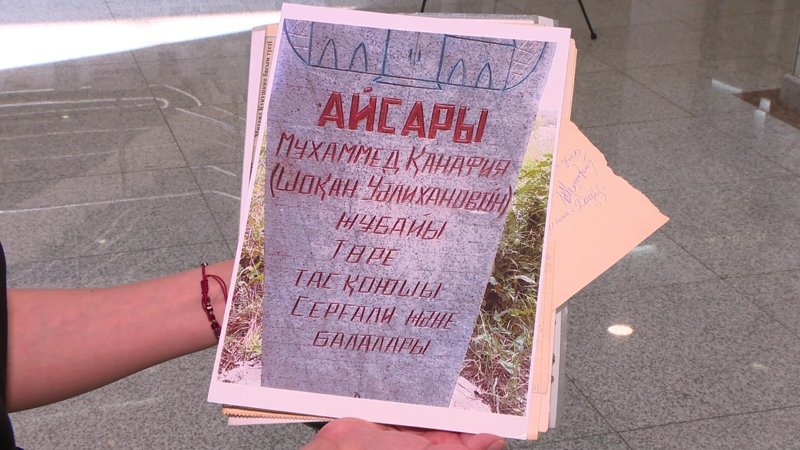 АЙСАРЫ
МҰХАММЕД ҚАНАФИЯ
(ШОҚАН УӘЛИХАНОВОЙН)
ЖҰБАЙЫ
ТӨРЕ
ТАС ҚОЮШЫ
СЕРҒАЛИ ЖӘНЕ
БАЛАЛАРЫ